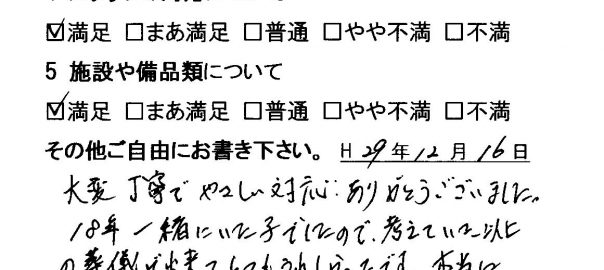 ☑満足 □まあ満足 □普通 □やや不満 □不満
5 施設や備品類について
☑満足 □まあ満足 □普通 □やや不満 □不満
その他ご自由にお書き下さい。 H 29年12月16日
大変丁寧でやさしい対応ありがとうございました。
18年一緒にいた子でしたので、考えていた以上に
の葬儀が出来てとてもうれしかったです。本当に